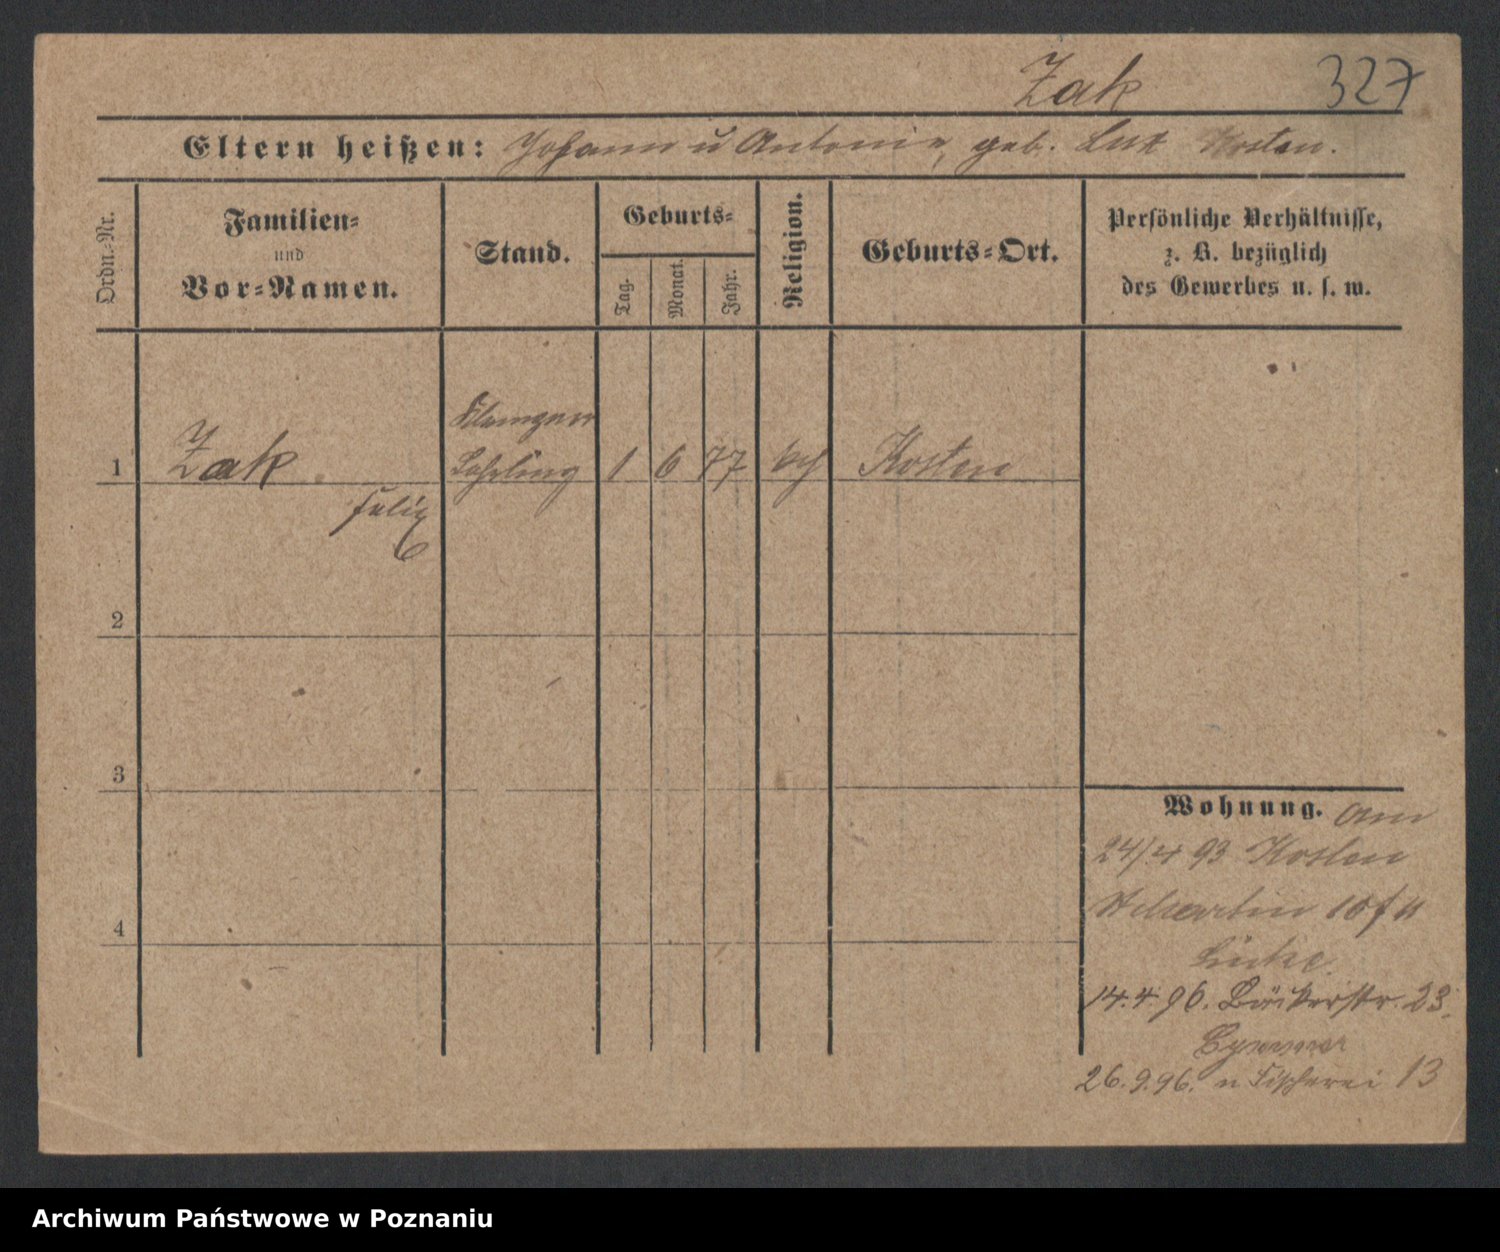 Zak 327
Eltern heißen: Johann u Antonie, geb. Lux Kosten.
Ordn.-Nr.
Familien-
und
Vor-Namen.
Stand.
Geburts-
Tag.
Monat.
Jahr.
Religion.
Geburts-Ort.
Persönliche Verhältnisse,
z. B. bezüglich
des Gewerbes u. s. w.
Lehrling
1 Zak 1 6 77 kth Kosten
Felix
2
3
4
Wohnung. Am
24/4 93 Kosten
St Martin 10
14.4.96. Bäckerstr. 23.
26.9.96. n Fischerei 13
Archiwum Państwowe w Poznaniu